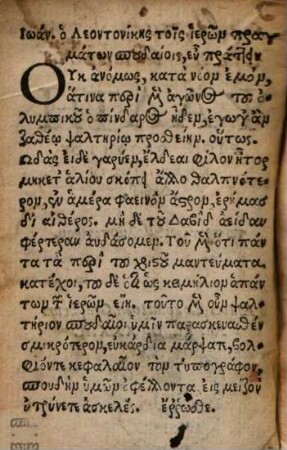 Ἰωάν. ὁ Λεοντονίκης τοῖς ἱερῶν πραγ
μάτων σπουδαίοις, εὖ πράττειν
Οὐκ ἀνόμως, κατὰ νόον ἐμὸν,
ἅτινα περὶ ἀγῶνος τοῦ ὀ
λυμπικοῦ ὁ πίνδαρος ᾖδεν, ἐγωγ'
ψαλτηρίῳ προσθείην. οὕτως.
Ὠδὰς εἰ δὲ γαρύεν, ἔλδεαι φίλον ἦτορ
μηκετ' ἁλίου σκόπ ἄλλο θαλπνότε
ρον, ἐν ἁμέρᾳ φαεινὸν ἄστρον, ἐρήμας
δι' αἰθέρος. μὴ δὲ τοῦ Δαβὶδ ἀείδαν
φέρτεραν αὐδάσομεν. Τοῦ ὅτι πάν
τα τὰ περὶ τοῦ χριστοῦ μαντεύματα
κατέχοι, τοῦ δὲ ὡς κειμήλιον ἁπάν
των τῶν ἱερῶν εἴη. τοῦτο οὖν ψαλ
τήριον σπουδαῖοι ὑμῖν παρασκευαθὲν
σμικρότερον, εὐκάρδια
κεφαλαῖον τὸν τυπογράφον,
σπουδὴν ὑμῶν ὀφέλλοντα εἰς μεῖζον
ὀτρύνετε ἀσκελές. ἔρρωσθε.